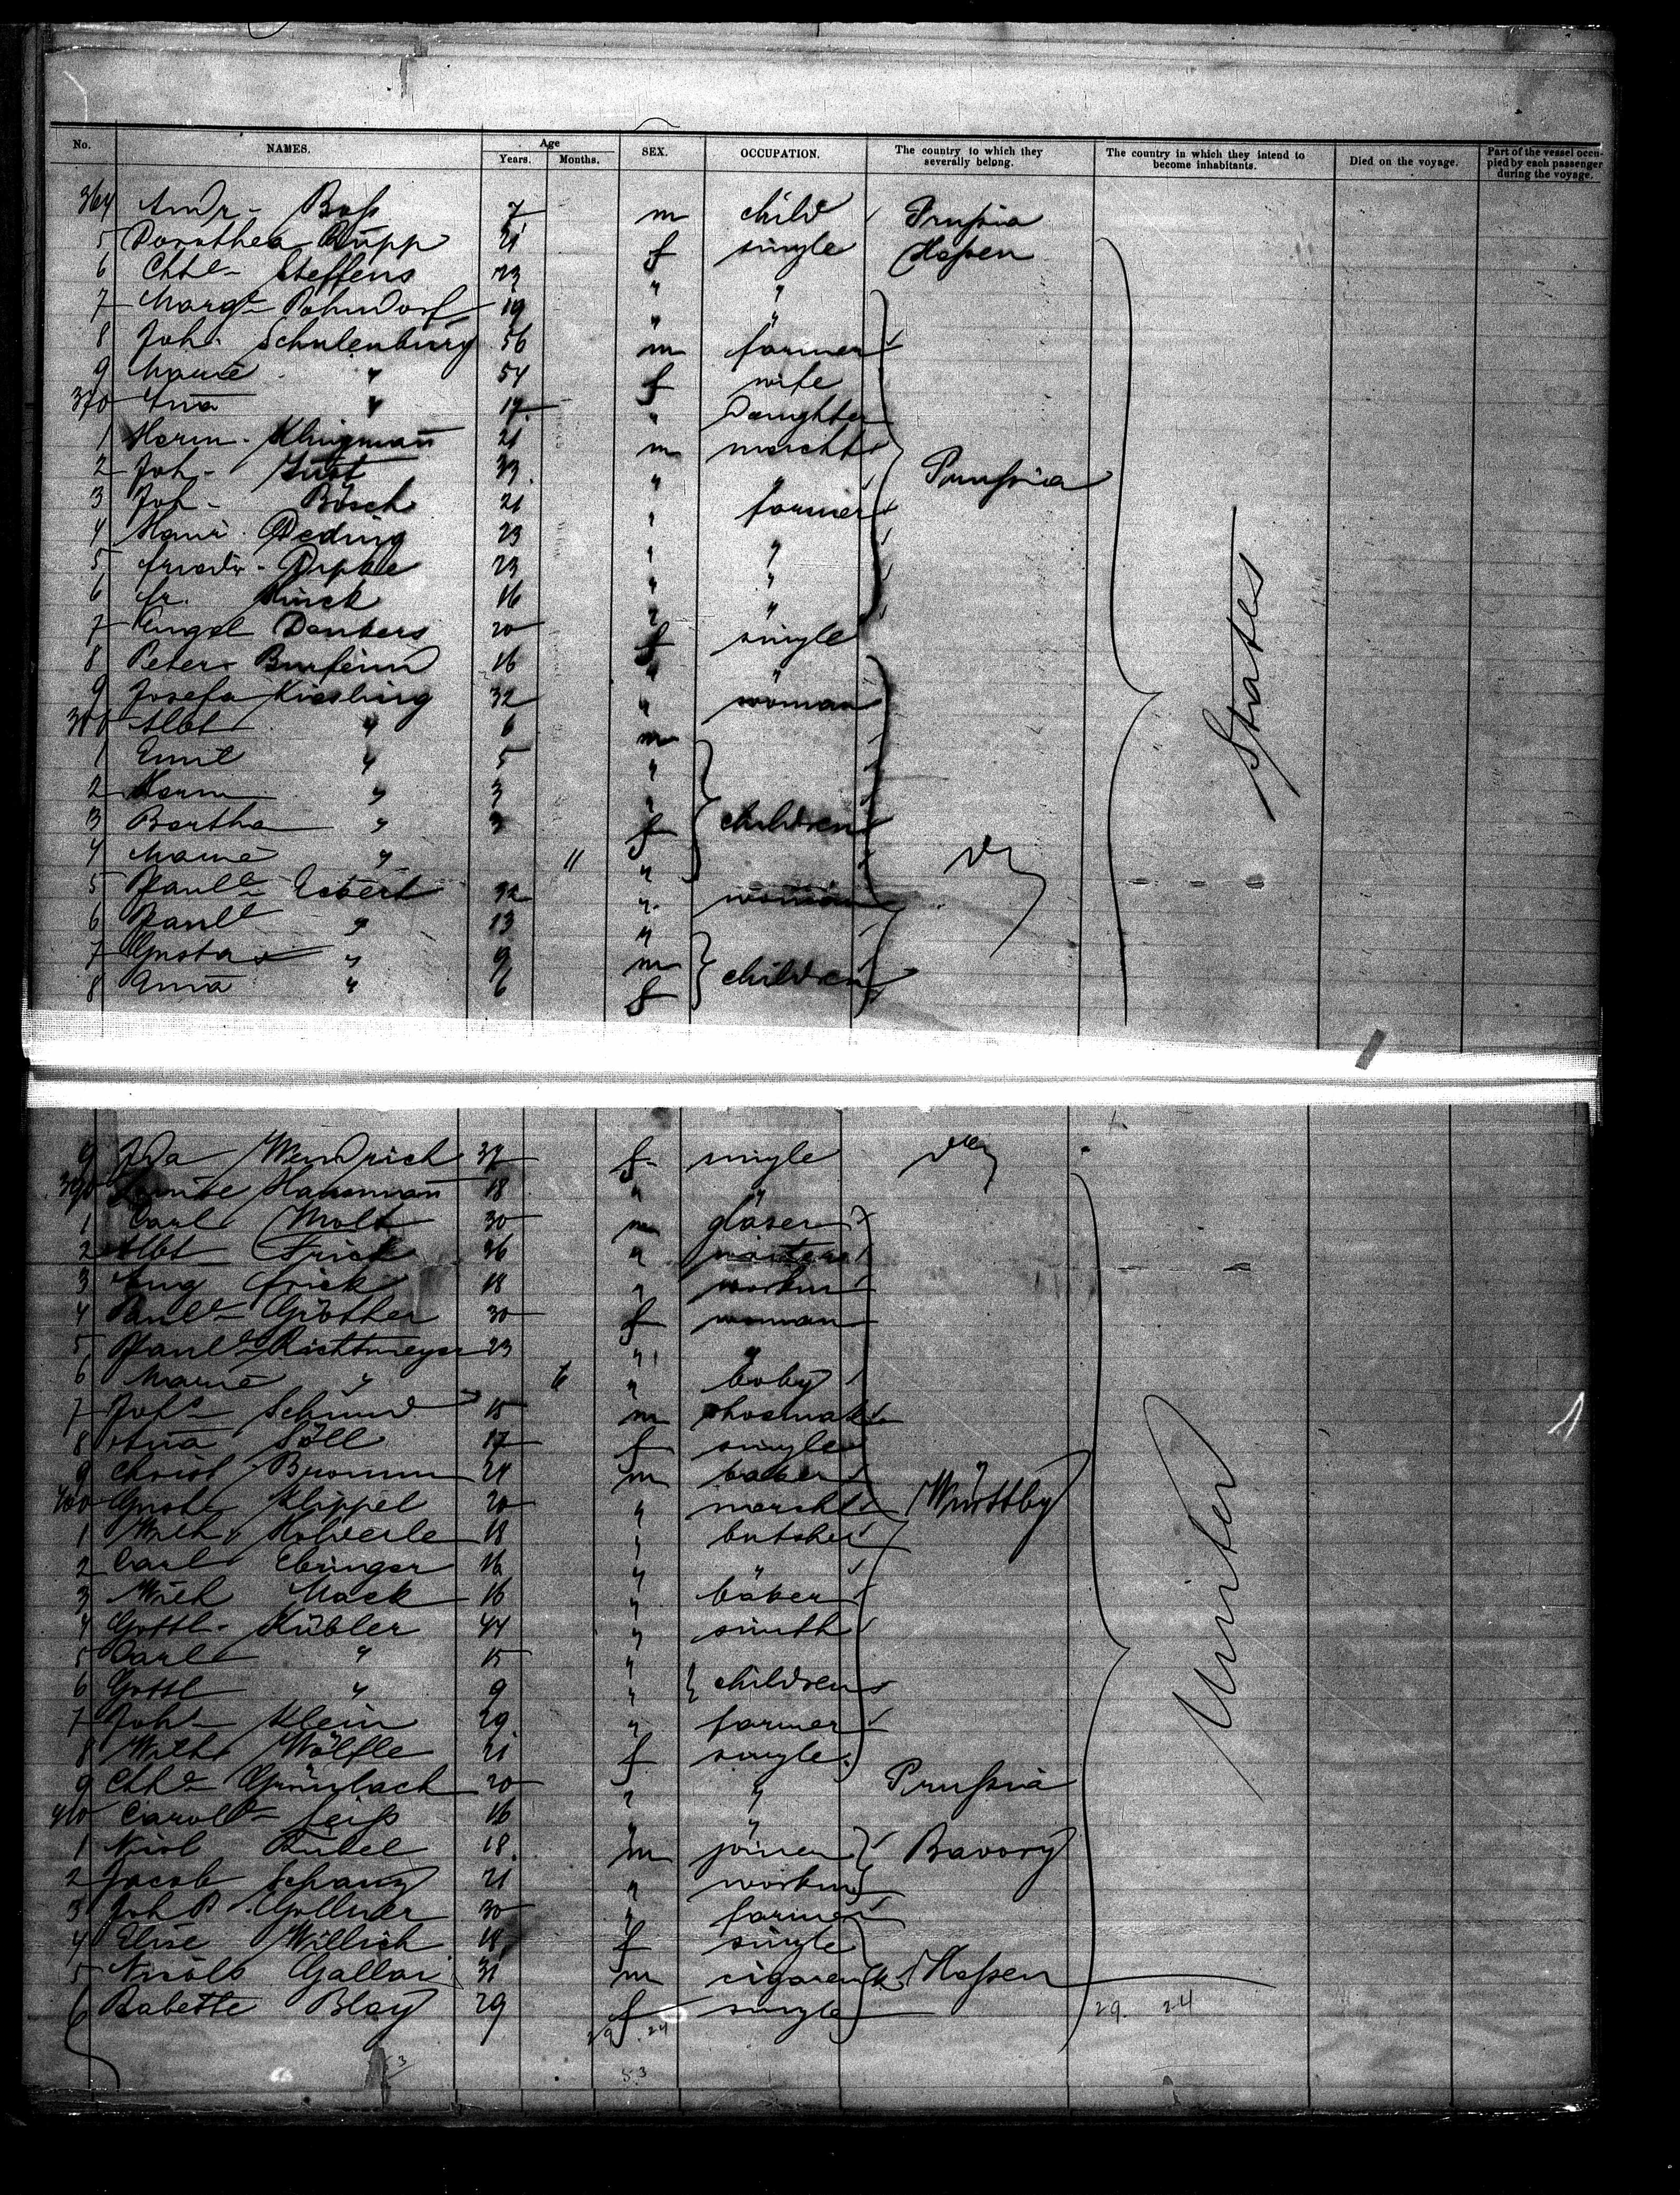 No. NAMES. Age Years. Months. SEX. OCCUPATION. The country to which they severally belong. The country in which they intend to become inhabitants. Died on the voyage. Part of the vessel occupied by each passenger during the voyage.
364 Andr- Boß 7 m child Prußia
5 Dorothea Rupp 21 f single Heßen
6 Chte- Steffens 23 " "
7 Margt- Pohndorf 19 " "
8 Joh. Schulenburg 56 m farmer
9 Marie " 54 f wife
370 Ana " 17 " Daughter
1 Herm. Klingman 21 m marcht
2 Joh- Just 23 " " Prußia
3 Joh- Bösch 21 " farmer
4 Heinr. Oeding 23 " "
5 Friedr- 23 " "
6 Fr. Kinck 16 " "
7 Engel Denkers 20 f single
8 Peter 16 " "
9 Josefa Kiesling 32 " woman
380 Albt " 6 m
1 Emil " 5 "
2 Herm " 3 "
3 Bertha " 3 f children
4 Marie " 11 "
5 Paule Eckert 32 " woman
6 Paule " 13 "
7 Gustav " 9 m
8 Anna " 6 f children
States
9 Ida Wendrich 37 f single
390 Louise Hausman 18 " "
1 Carl Molt 30 m glaser
2 Albt Frick 36 "
3 Aug Frick 18 " workm
4 Paule Günther 30 f woman
5 Paule Richtmeyer 23 " "
6 Marie " 6 " baby
7 Johs- Schmid 15 m shoemak
8 Ana Söll 17 f single
9 Christ Bromm 21 m baker
400 Gust Klippel 20 " marcht Württbg
1 Wilh. Holderle 18 " butcher
2 Carl Ebinger 16 " "
3 Wilh Mack 16 " baker
4 Gottl- Kübler 44 " smith
5 Carl " 15 "
6 Gottl " 9 " children
7 Joh- Klein 29 " farmer
8 Wilhe Wölfle 21 f single
9 Chte Grünbach 20 " " Prußia
410 Carole Leiß 16 " "
1 Nicol Rubel 18 m joiner Bavory
2 Jacob Schanz 21 " workm
3 Joh B. Gollner 30 " farmer
4 Elise Willich 18 f single
5 Nicols Gallai 31 m cigarenmk Heßen
6 Babette Blay 29 f single
United
29. 24
29. 24
53